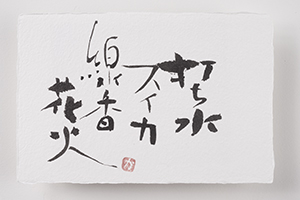 打ち水
スイカ
線香
花火
か